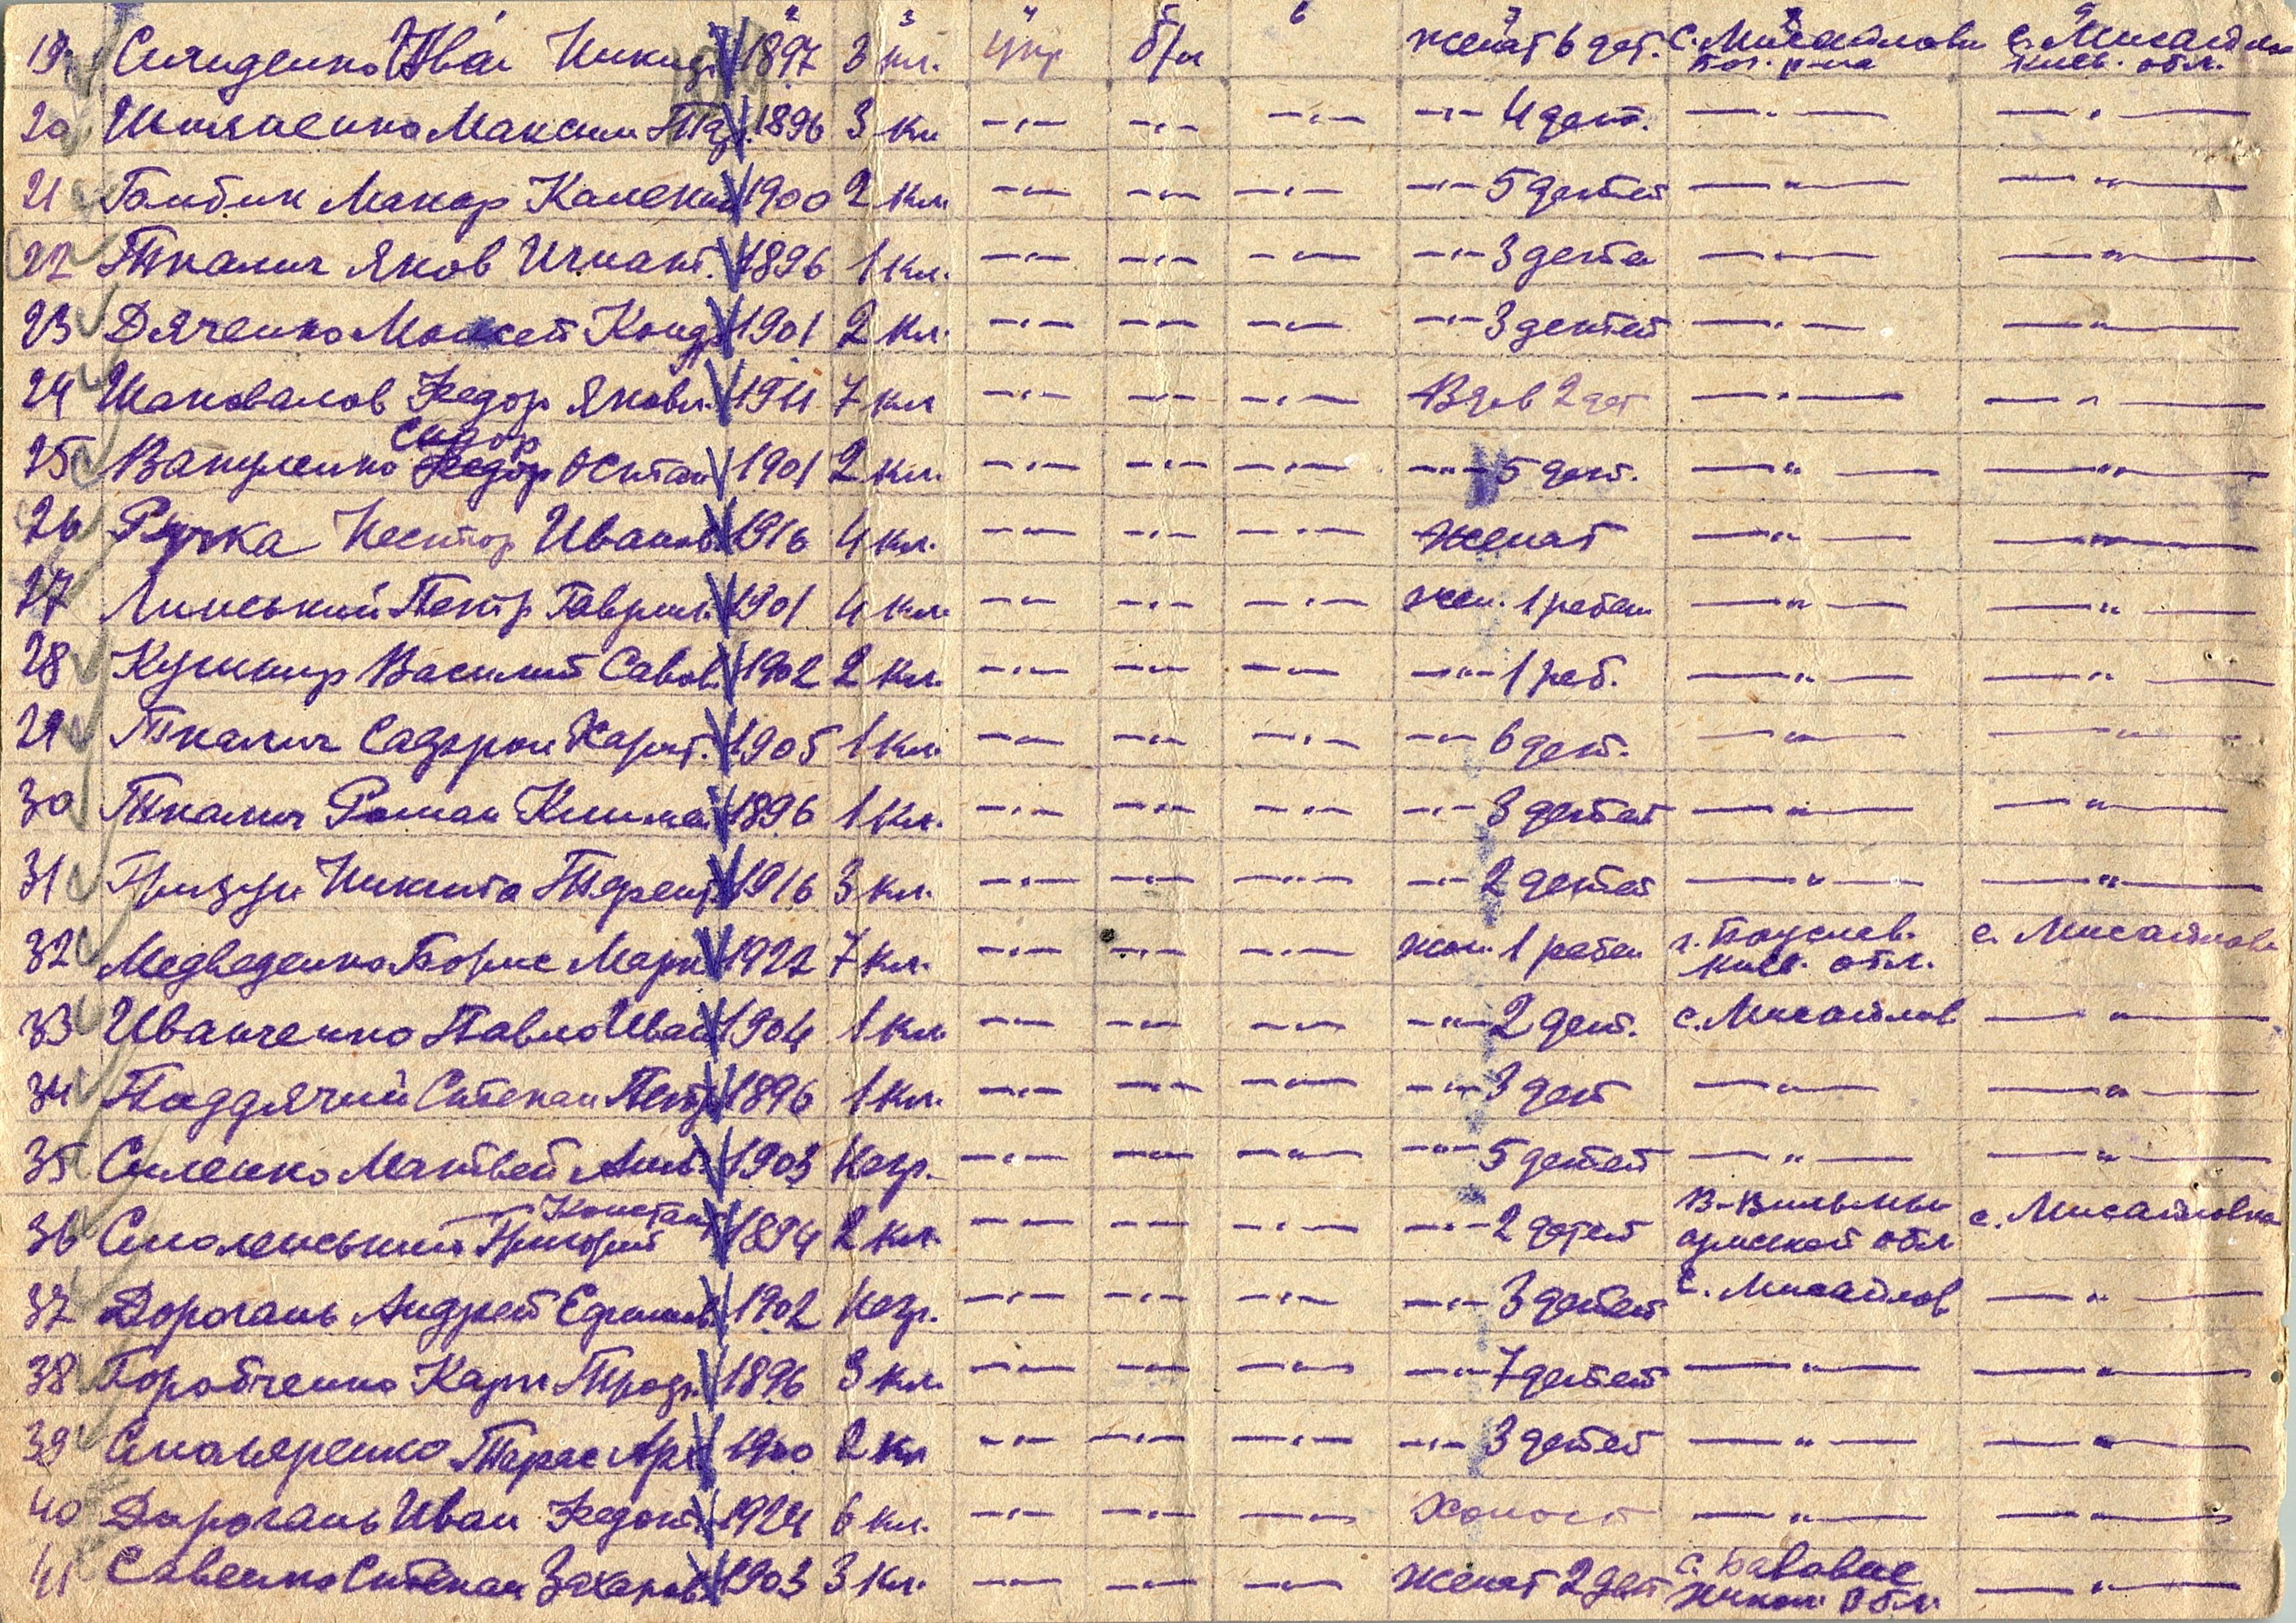 2 3 4 5 6 7 8 9
19 Иван 1897 3 кл. укр б/п женат 6 дет. с. Мисайловк с. Мисайловк
Бог. р-на киев. обл.
20 Максим 1896 3 кл —"— —"— —"— —"— 4 дет. —"— —"—
21 Макар 1900 2 кл. —"— —"— —"— —"— 5 детей —"— —"—
22 Ткалич Яков Игнат. 1896 1 кл. —"— —"— —"— —"— 3 дета —"— —"—
23 Дяченко Моисей Конд 1901 2 кл. —"— —"— —"— —"— 3 детей —"— —"—
24 Шаповалов Федор Яковл. 1911 7 кл —"— —"— —"— Вдов 2 дет —"— —"—
Сидор
25 Вакуленко Федор Остап 1901 2 кл. —"— —"— —"— —"— 5 дет. —"— —"—
26 Ручка Нестор Иванов 1916 4 кл. —"— —"— —"— женат —"— —"—
27 Линський Петр Гаврил. 1901 4 кл. —"— —"— —"— жен. 1 ребен —"— —"—
28 Кушнир Василий Савов. 1902 2 кл. —"— —"— —"— —"— 1 реб. —"— —"—
29 Ткалич Карп. 1905 1 кл. —"— —"— —"— —"— 6 дет. —"— —"—
30 Ткалич Роман Климен 1896 1 кл. —"— —"— —"— —"— 3 детей —"— —"—
31 Никита Терент 1916 3 кл. —"— —"— —"— —"— 2 детей —"— —"—
32 Медведенко Борис Марк 1922 7 кл. —"— —"— —"— жен. 1 ребен г. Богуслав. с. Мисайловк
киев. обл.
33 Иванченко Павло Иван 1904 1 кл —"— —"— —"— —"— 2 дет. с. Мисайлов —"—
34 Поддячий Степан Петр 1896 1 кл. —"— —"— —"— —"— 3 дет —"— —"—
35 Силенко Матвей Ант. 1903 Негр. —"— —"— —"— —"— 5 детей —"— —"—
Констан
36 Смоленський Григорий 1894 2 кл. —"— —"— —"— —"— 2 детей с. Мисайловка
обл
37 Дорогань Андрей Ефимов 1902 Негр. —"— —"— —"— —"— 3 детей с. Мисайлов —"—
38 Горобченко Карп Трофи 1896 3 кл. —"— —"— —"— —"— 7 детей —"— —"—
39 Тарас 1900 2 кл —"— —"— —"— —"— 3 детей —"— —"—
40 Дорогань Иван Федот. 1924 6 кл. —"— —"— —"— Холост —"— —"—
41 Савенко Степан Захаров 1903 3 кл. —"— —"— —"— женат 2 дет с. —"—
обл.